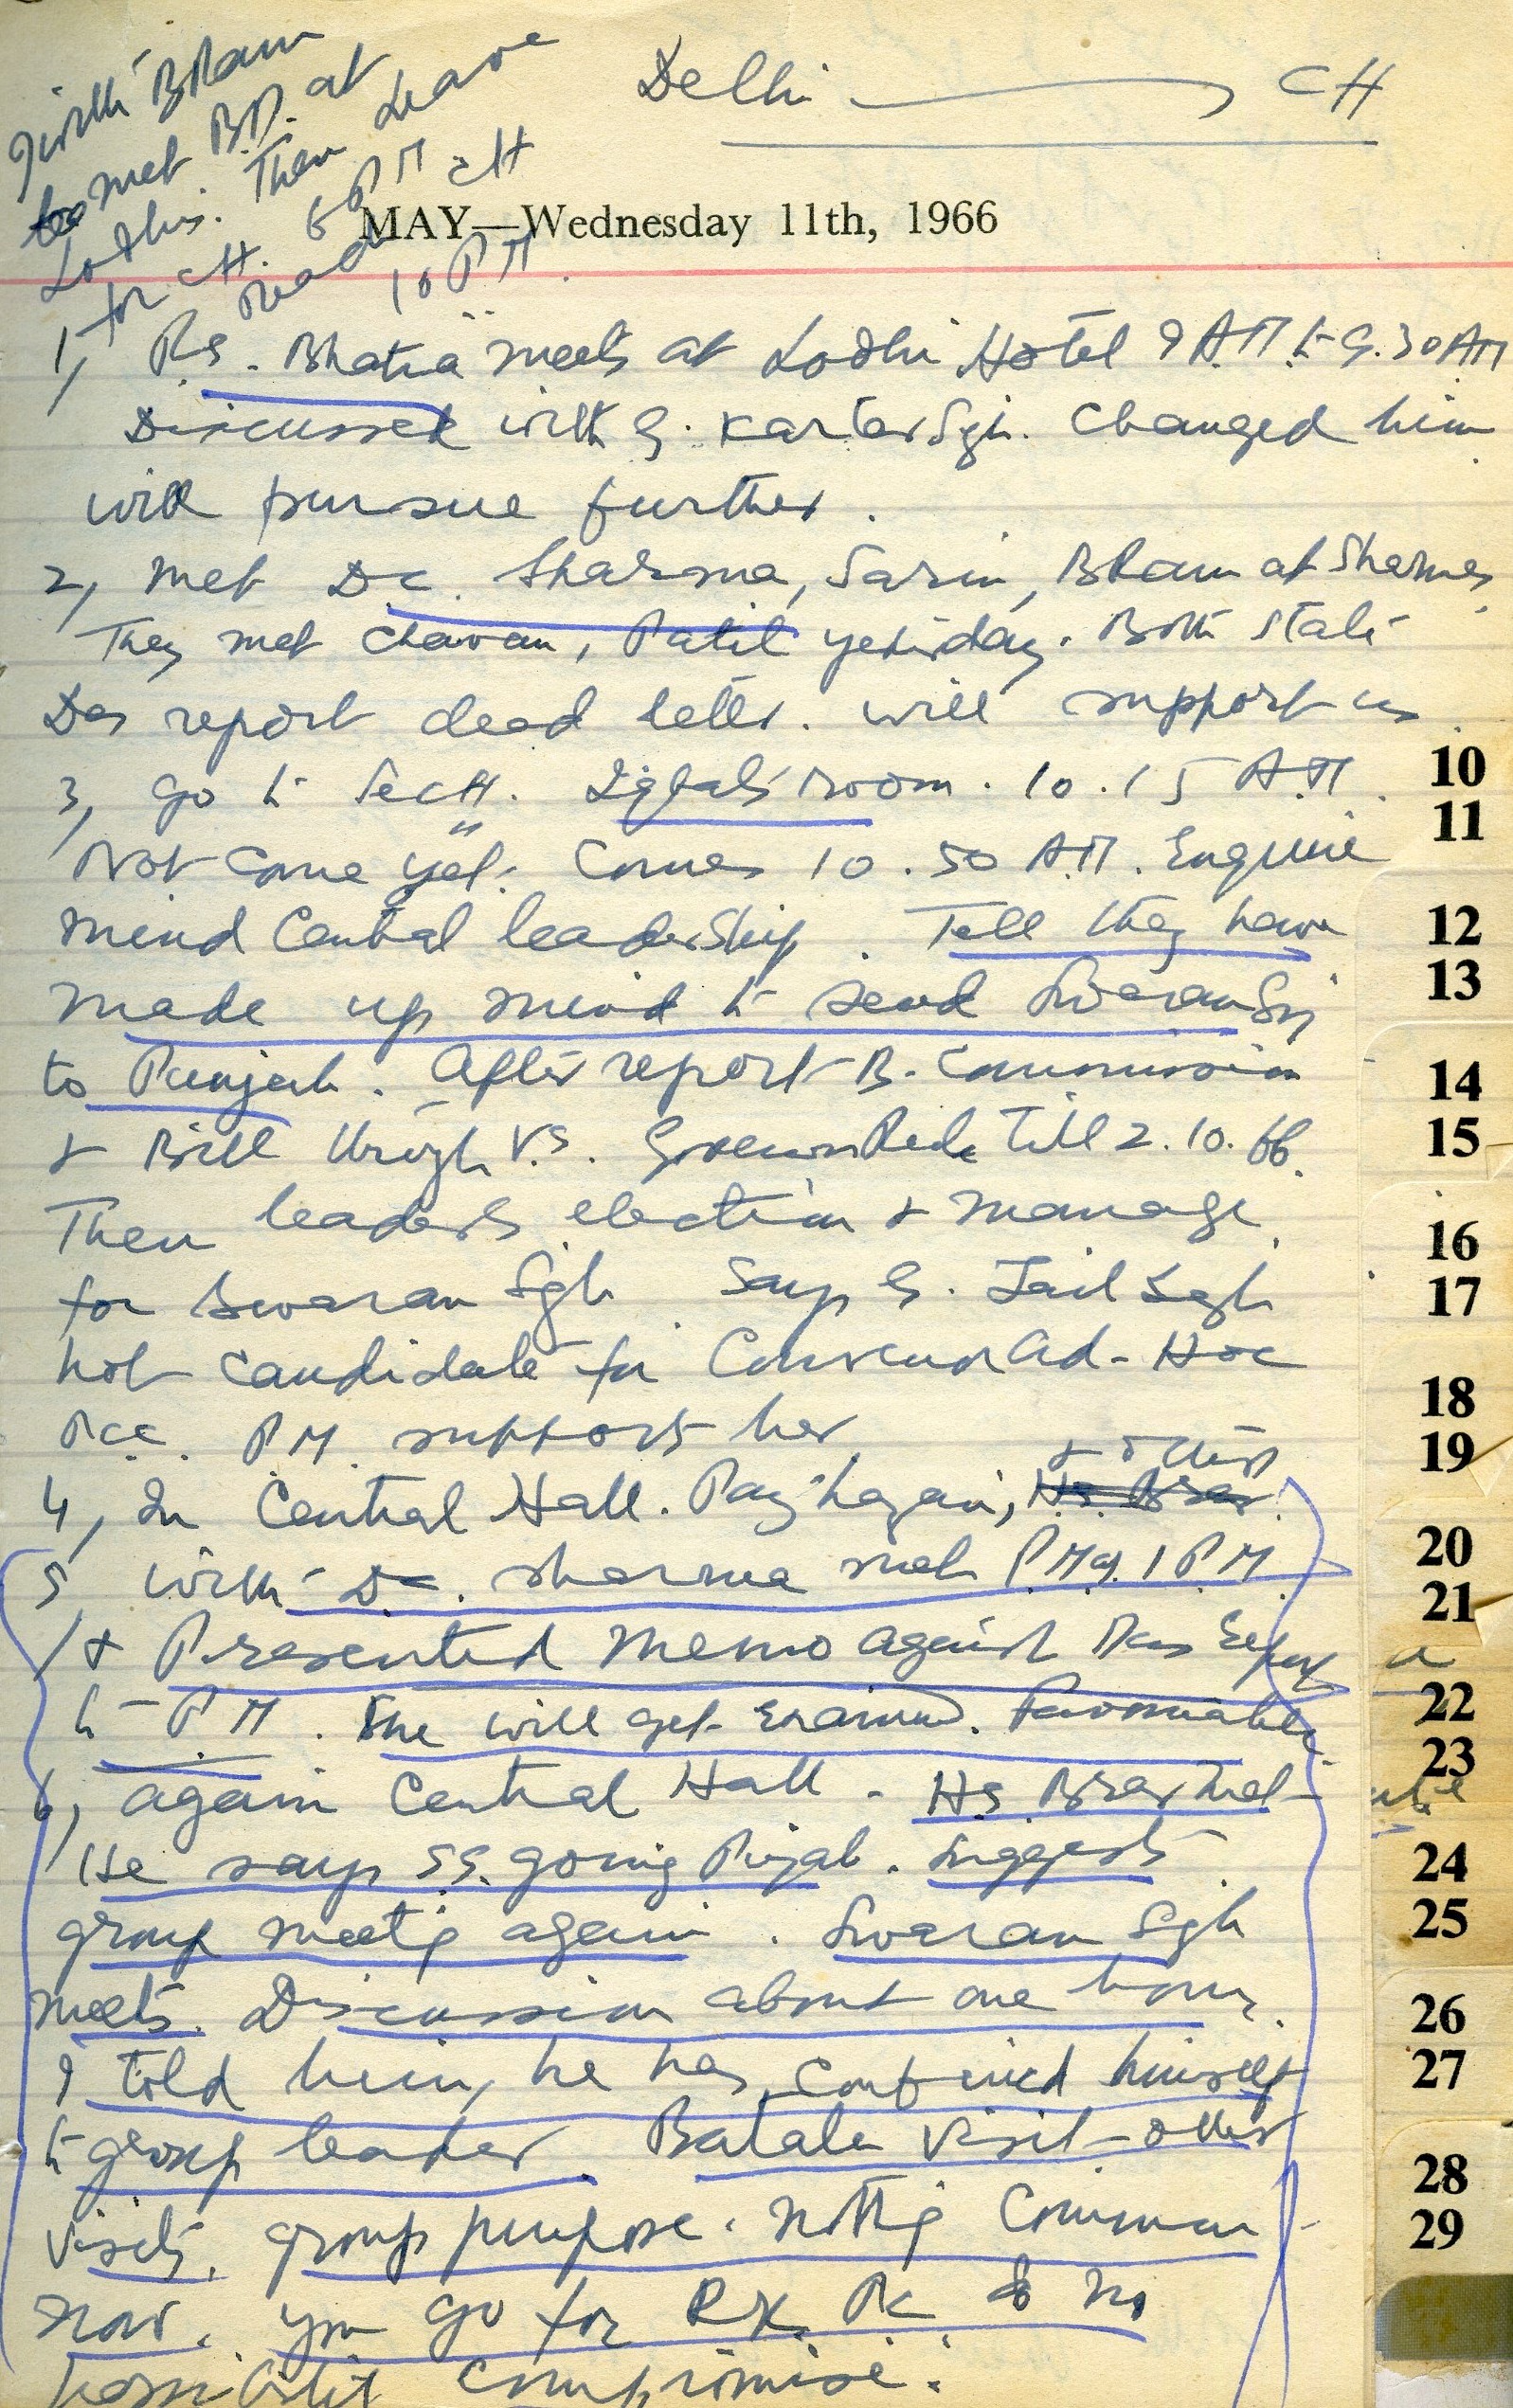 Delhi — CH
with BRam
met B.D. at
Lodhis. Then Leave
for CH. 5 PM CH
Read 10 PM
MAY—Wednesday 11th, 1966
1, R.S. Bhatia meets at Lodhi Hotel 9 AM to 9.30 AM
Discussed with S. Kartar Sgh. Changed him
will pursue further.
2, Met D.C. Sharma, Sarin, BRam at Sharmas
They met Chavan, Patil yesterday. Both state
Das report dead letter. Will support us.
3, Go to Sectt. Iqbals room. 10.15 A.M.
Not come yet. Comes 10.50 A.M. Enquire
mind Central leadership. Tell they have
made up mind to send Swaran Sgh
to Punjab. After report B. Commission
& Bill through V.S. Governor Rule till 2.10.66.
Then leaders election & manage
for Swaran Sgh. Says G. Zail Sgh
not candidate for Convenor Ad-Hoc
PCC. PM supports her
4, In Central Hall. & others
5, with D.C. Sharma met PM at 1 PM
& Presented Memo against Das Report
to P.M. She will get examined. Favourable
6, again Central Hall. HS Brar met
He says SS. going Punjab. Suggests
group meetg again. Swaran Sgh
meets. Discussion about one hour.
I told him, he has confined himself
to group leader. Batala visit other
visits, group purpose. Nothg Common
now. You go for RK, PK & no
possibility compromise.
10
11
12
13
14
15
16
17
18
19
20
21
22
23
24
25
26
27
28
29